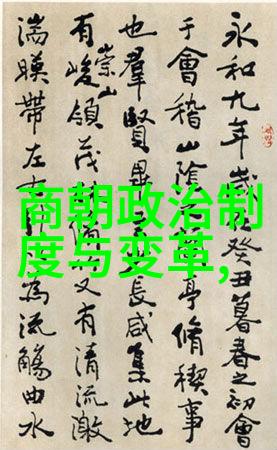 永和九年歲在癸丑暮春之初會
于會稽山陰亭脩稧事
也羣賢畢長咸集此地
有崇山峻領茂脩又有清流激
湍暎帶左為流觴曲水
商朝政治制
度与变革,